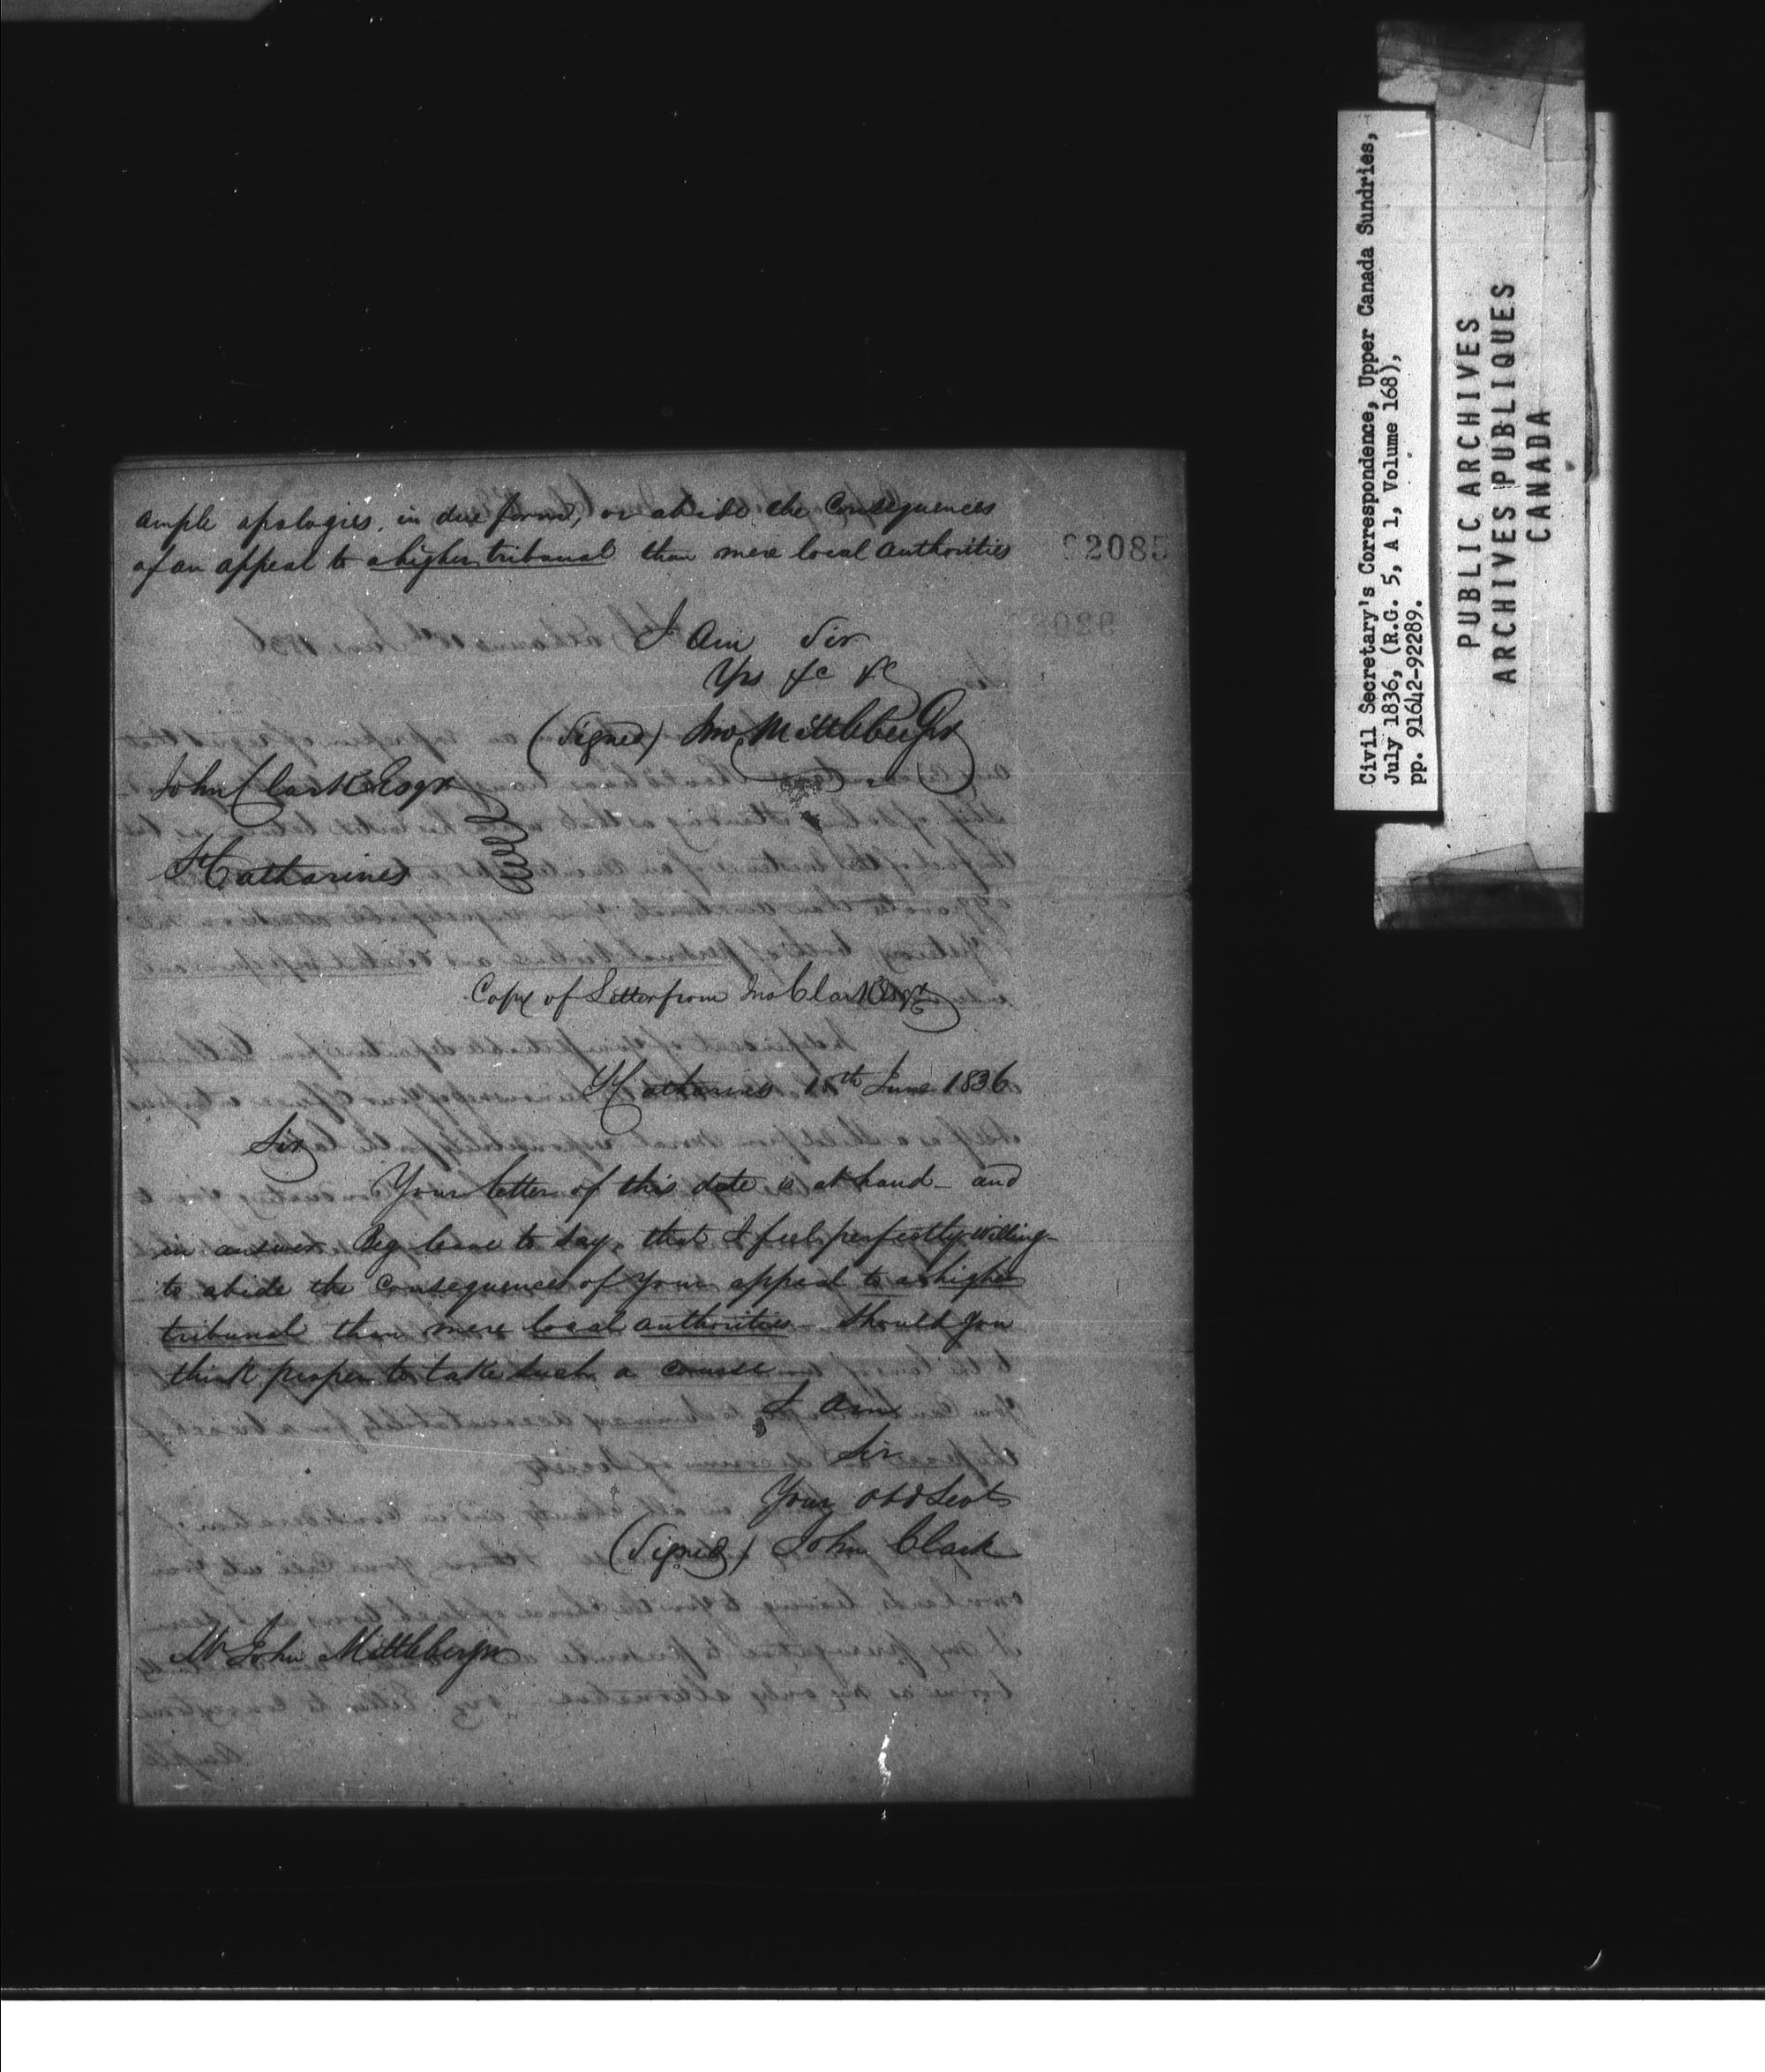 ample apologies, in due form, or abide the Consequences
of an appeal to a higher tribunal than mere local authorities
92085
I Am Sir
Yrs &c &c
(Signed) Jno Mittleberger
John Clark Esqr
St Catharines
Copy of Letter from Jno Clark Esqr
St Catharines 10th June 1836
Sir
Your letter of this date is at hand - and
in answer Beg leave to say, that I feel perfectly willing
to abide the Consequences of Your appeal to a higher
tribunal than mere local authorities - Should You
think proper to take such a course
I am
Sir
Your Obd Servt
(Signed) John Clark
Mr John Mittleberger
Civil Secretary's Correspondence, Upper Canada Sundries,
July 1836, (R.G. 5, A 1, Volume 168),
pp. 91642-92289.
PUBLIC ARCHIVES
ARCHIVES PUBLIQUES
CANADA